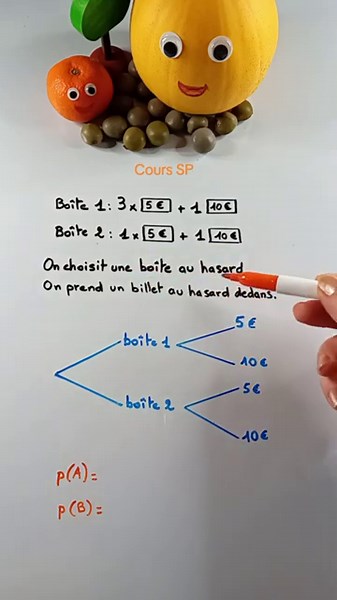 Cours SP
Boîte 1 : 3 x 5 € + 1 10 €
Boîte 2 : 1 x 5 € + 1 10 €
On choisit une boîte au hasard
On prend un billet au hasard dedans.
5 €
boîte 1
10 €
5 €
boîte 2
10 €
p(A) =
p(B) =